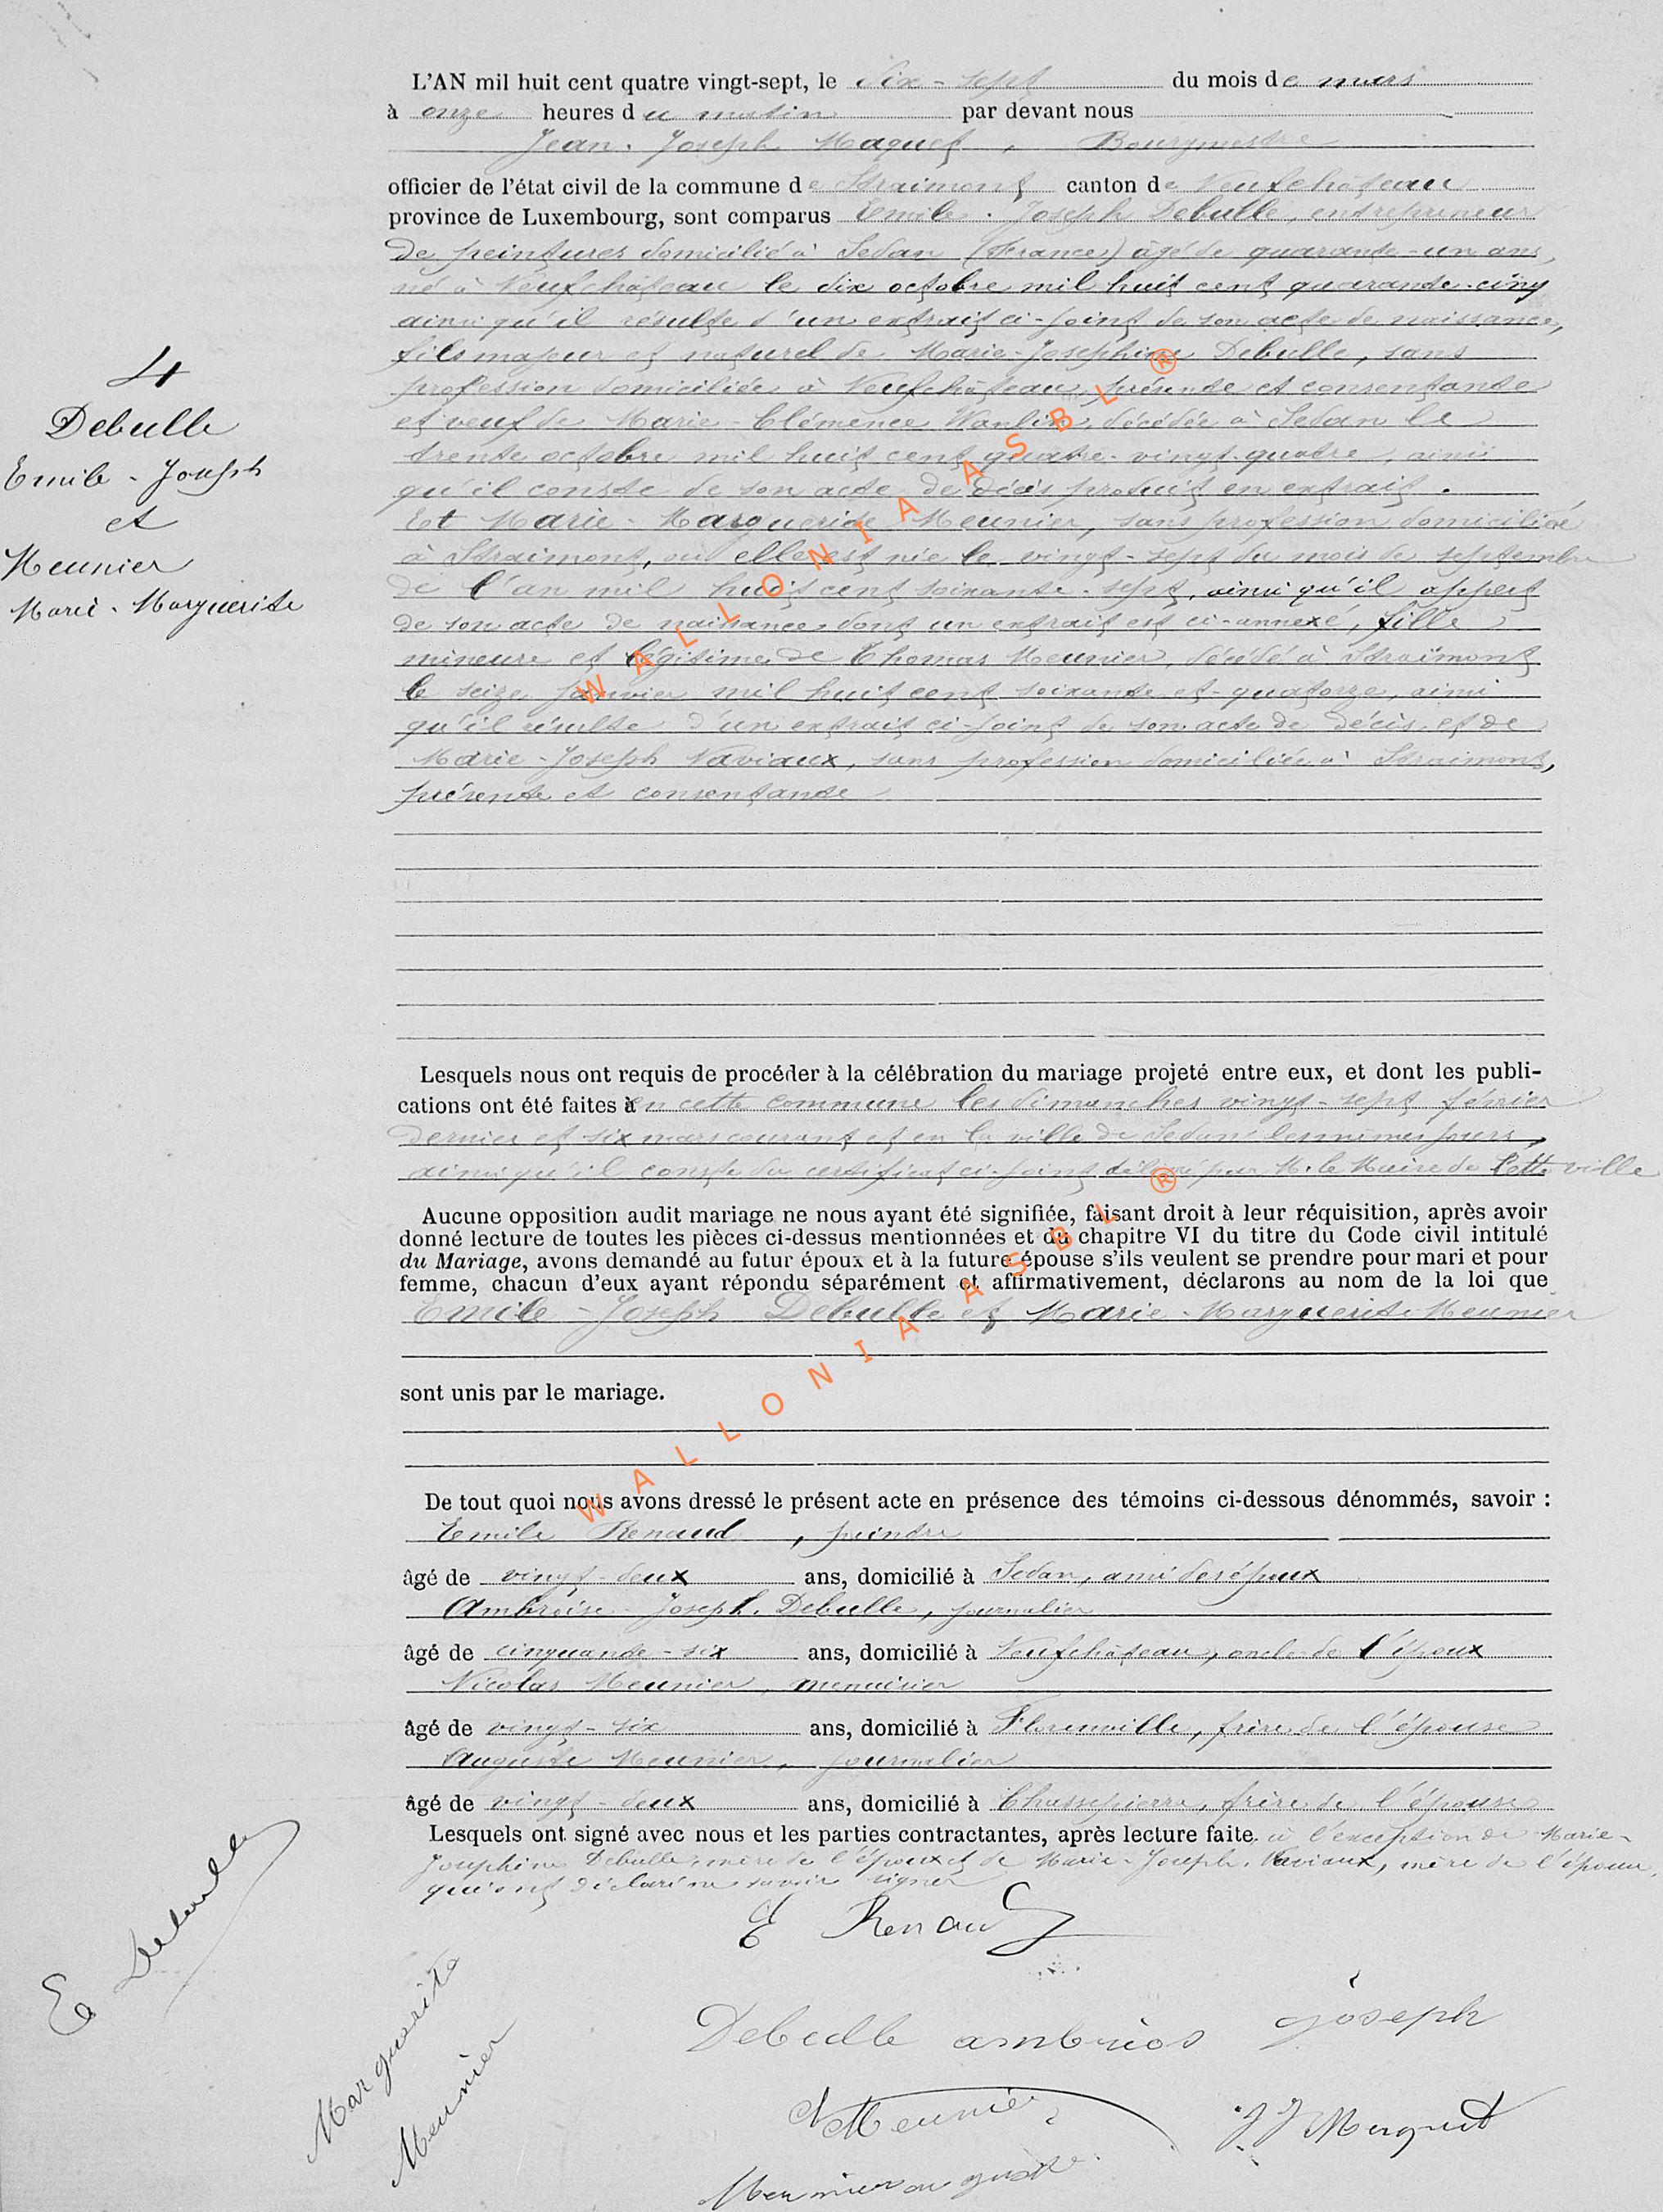 L'AN mil huit cent quatre vingt-sept, le dix-sept du mois de mars
à onze heures du matin par devant nous
Jean-Joseph Maquet, Bourgmestre
officier de l'état civil de la commune de Straimont canton de Neufchâteau
province de Luxembourg, sont comparus Emile-Joseph Debulle, entrepreneur
de peintures domicilié à Sedan (France) âgé de quarante-un ans,
né à Neufchâteau le dix octobre mil huit cent quarante-cinq
ainsi qu'il résulte d'un extrait ci-joint de son acte de naissance,
fils majeur et naturel de Marie-Josephine Debulle, sans
profession domiciliée à Neufchâteau, présente et consentante
et veuf de Marie-Clémence Wanlin, décédée à Sedan le
trente octobre mil huit cent quatre-vingt-quatre, ainsi
qu'il conste de son acte de décès produit en extrait.
Et Marie-Marguerite Meunier, sans profession domiciliée
à Straimont, où elle est née le vingt-sept du mois de septembre
de l'an mil huit cent soixante-sept, ainsi qu'il appert
de son acte de naissance dont un extrait est ci-annexé, fille
mineure et légitime de Thomas Meunier, décédé à Straimont
le seize janvier mil huit cent soixante et-quatorze, ainsi
qu'il résulte d'un extrait ci-joint de son acte de décès et de
Marie-Joseph Naviaux, sans profession domiciliée à Straimont,
présente et consentante
4
Debulle
Emile-Joseph
et
Meunier
Marie-Marguerite
Lesquels nous ont requis de procéder à la célébration du mariage projeté entre eux, et dont les publi-
cations ont été faites à en cette commune les dimanches vingt-sept février
dernier et six mars courant et en la ville de Sedan les mêmes jours,
ainsi qu'il conste du certificat ci-joint délivré par M. le Maire de cette ville
Aucune opposition audit mariage ne nous ayant été signifiée, faisant droit à leur réquisition, après avoir
donné lecture de toutes les pièces ci-dessus mentionnées et du chapitre VI du titre du Code civil intitulé
du Mariage, avons demandé au futur époux et à la future épouse s'ils veulent se prendre pour mari et pour
femme, chacun d'eux ayant répondu séparément et affirmativement, déclarons au nom de la loi que
Emile-Joseph Debulle et Marie-Marguerite Meunier
sont unis par le mariage.
De tout quoi nous avons dressé le présent acte en présence des témoins ci-dessous dénommés, savoir :
Emile Renaud, peintre
âgé de vingt-deux ans, domicilié à Sedan, ami des époux
Ambroise-Joseph Debulle, journalier
âgé de cinquante-six ans, domicilié à Neufchâteau, oncle de l'époux
Nicolas Meunier, menuisier
âgé de vingt-six ans, domicilié à Florenville, frère de l'épouse
Auguste Meunier, journalier
âgé de vingt-deux ans, domicilié à Chassepierre, frère de l'épouse
Lesquels ont signé avec nous et les parties contractantes, après lecture faite à l'exception de Marie-
Josephine Debulle, mère de l'époux et de Marie-Joseph Naviaux, mère de l'épouse,
qui ont déclaré ne savoir signer
E Renaud
E Debulle
Marguerite
Meunier
Debulle ambrios joseph
N Meunier
J J Maquet
Meunier auguste
WALLONIA ASBL ®
WALLONIA ASBL ®